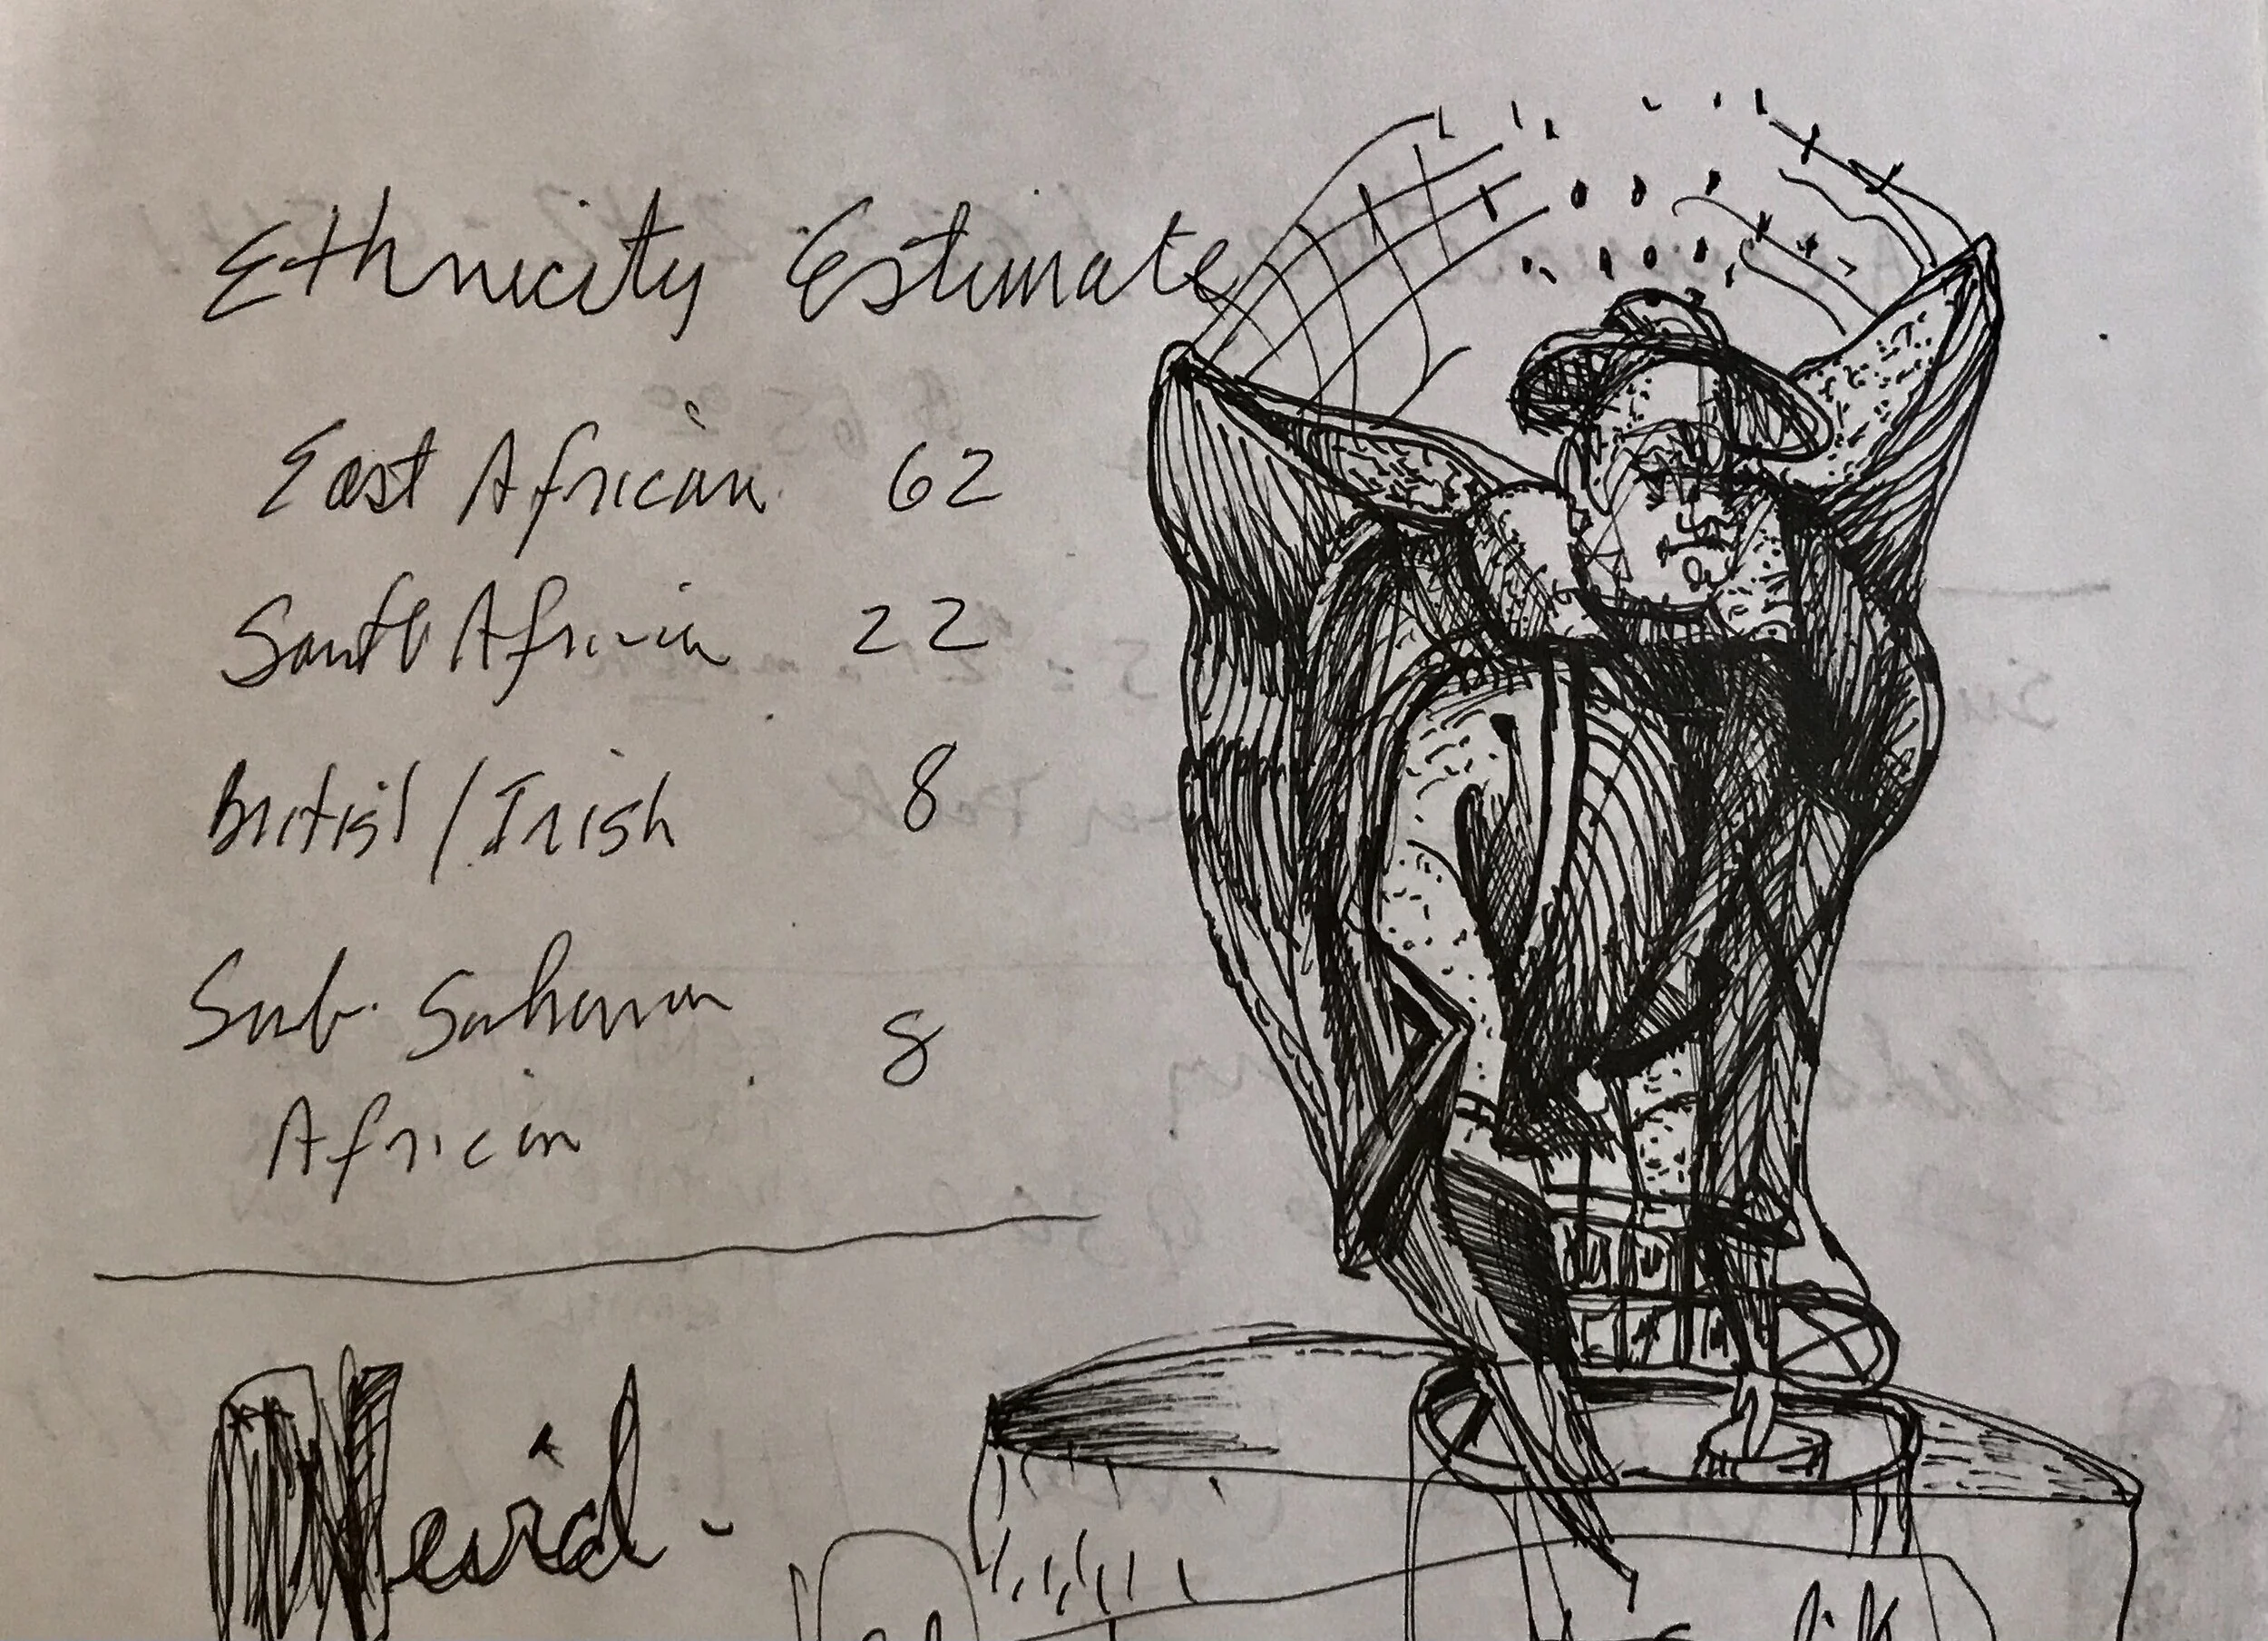 Ethnicity Estimate
East African 62
South African 22
British/Irish 8
Sub-Saharan 8
African